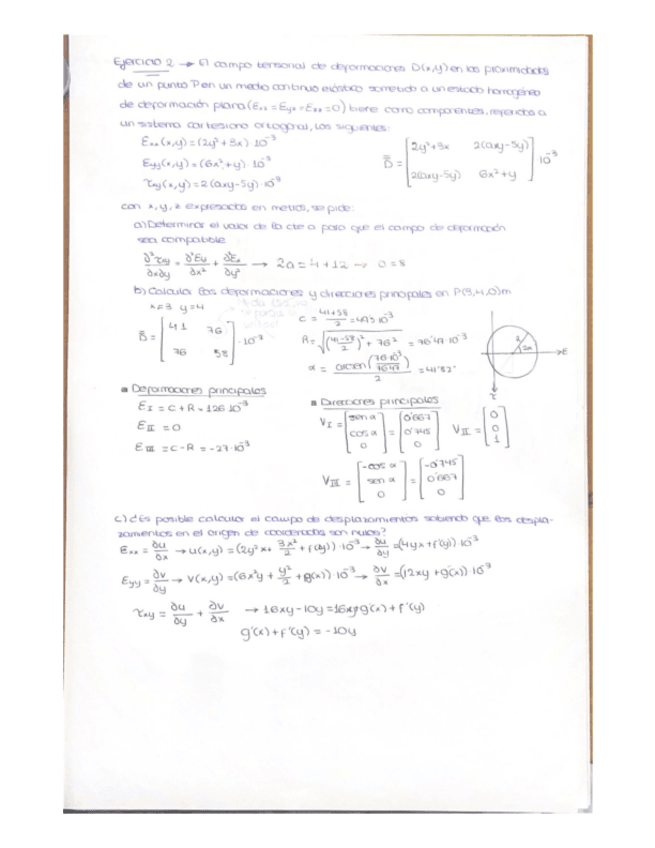 Ejercicio 2 → El campo tensorial de deformaciones D(x,y) en las proximidades
de un punto P en un medio continuo elástico sometido a un estado homogéneo
de deformación plana (Exz = Eyz = Ezz = 0) tiene como componentes, referidas a
un sistema cartesiano ortogonal, las siguientes:
Exx(x,y) = (2y²+3x)·10⁻³
Eyy(x,y) = (6x²+y)·10⁻³
τxy(x,y) = 2(axy-5y)·10⁻³
D = [2y²+3x 2(axy-5y)
2(axy-5y) 6x²+y]·10⁻³
con x, y, z expresados en metros, se pide:
a) Determinar el valor de la cte a para que el campo de deformación
sea compatible
∂²τxy/∂x∂y = ∂²Ey/∂x² + ∂²Ex/∂y² → 2a = 4+12 → a = 8
b) Calcular las deformaciones y direcciones principales en P(3,4,0)m
x=3 y=4
D = [41 76
76 58]·10⁻³
C = (41+58)/2 = 49'5·10⁻³
R = √((41-58/2)² + 76²) = 76'47·10⁻³
α = arcsen(76·10⁻³/76'47)/2 = 41'82°
R
2α
E
τ
▪ Deformaciones principales
E I = C+R = 126·10⁻³
E II = 0
E III = C-R = -27·10⁻³
▪ Direcciones principales
V I = [sen α
cos α
0] = [0'667
0'745
0]
V II = [0
0
1]
V III = [-cos α
sen α
0] = [-0'745
0'667
0]
c) ¿Es posible calcular el campo de desplazamientos sabiendo que los despla-
zamientos en el origen de coordenadas son nulos?
Exx = ∂u/∂x → u(x,y) = (2y²x + 3x²/2 + f(y))·10⁻³ → ∂u/∂y = (4yx+f'(y))·10⁻³
Eyy = ∂v/∂y → v(x,y) = (6x²y + y²/2 + g(x))·10⁻³ → ∂v/∂x = (12xy+g'(x))·10⁻³
τxy = ∂u/∂y + ∂v/∂x → 16xy-10y = 16xy+g'(x)+f'(y)
g'(x)+f'(y) = -10y